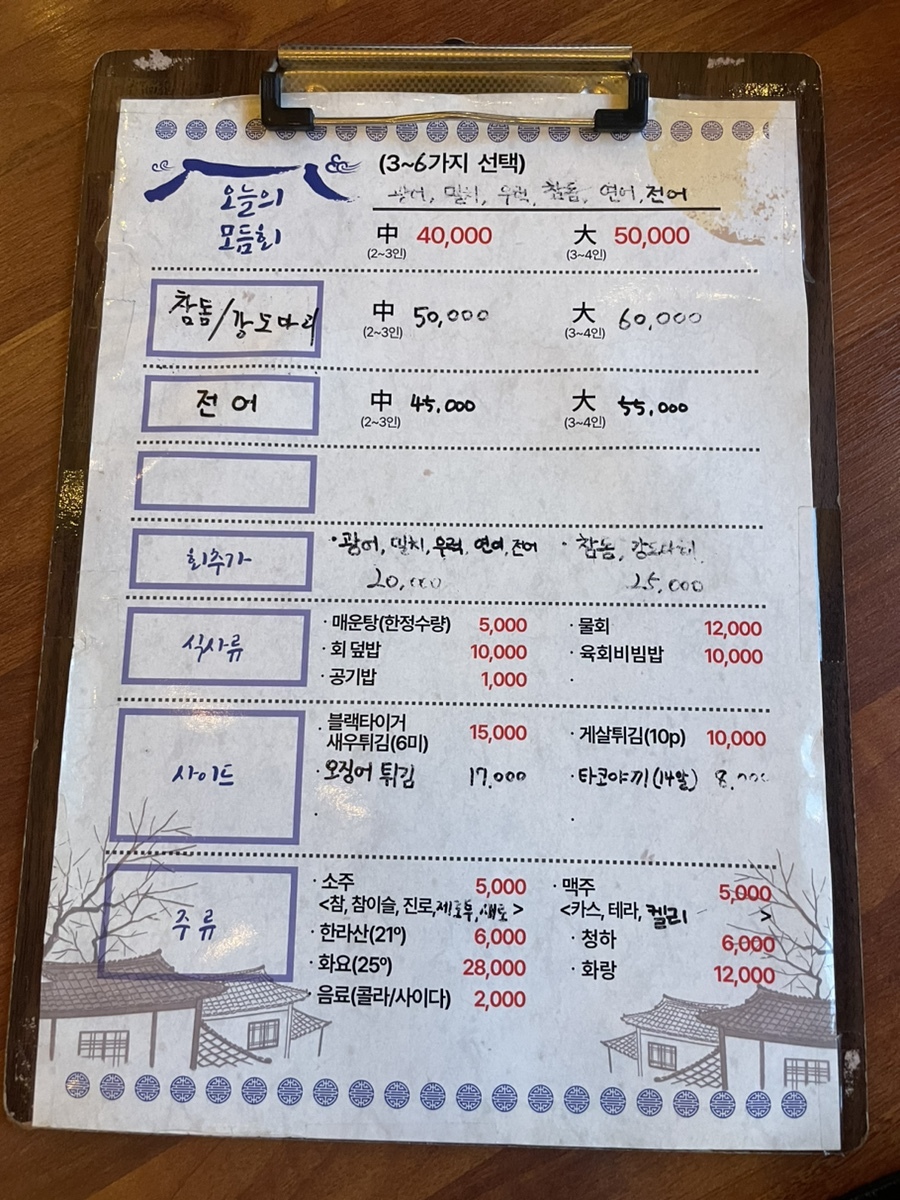 (3~6가지 선택)
오늘의
모듬회
광어, 밀치, 우럭, 참돔, 연어, 전어
中 40,000 大 50,000
(2~3인) (3~4인)
참돔/강도다리 中 50,000 大 60,000
(2~3인) (3~4인)
전어 中 45.000 大 55.000
(2~3인) (3~4인)
회추가
·광어, 밀치, 우럭, 연어, 전어 · 참돔, 강도다리
20,000 25,000
식사류
· 매운탕(한정수량) 5,000 · 물회 12,000
· 회 덮밥 10,000 · 육회비빔밥 10,000
· 공기밥 1,000 ·
사이드
· 블랙타이거
새우튀김(6미) 15,000 · 게살튀김(10p) 10,000
· 오징어 튀김 17.000 · 타코야끼(14알) 8.000
· ·
주류
· 소주 5,000 · 맥주 5,000
<참, 참이슬, 진로, 새로> <카스, 테라, 켈리 >
· 한라산(21º) 6,000 · 청하 6,000
· 화요(25º) 28,000 · 화랑 12,000
· 음료(콜라/사이다) 2,000